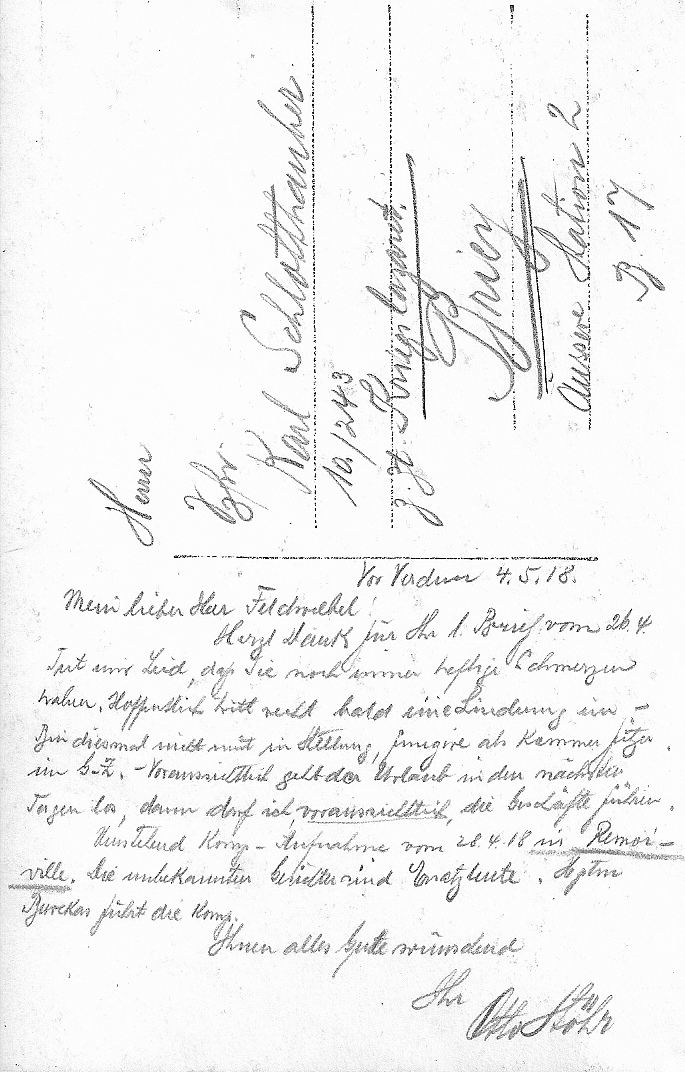 Herrn
Karl Schlotthauber.
10./243
z. Zt. Kriegslazaret.
Briey
Äussere Station 2
B 17
Vor Verdun 4.5.18.
Mein lieber Herr Feldwebel!
Herzl Dank für Ihr l. Brief vom 26.4.
Tut uns Leid, daß Sie noch immer heftige Schmerzen
haben. Hoffentlich tritt recht bald eine Linderung ein –
Bin diesmal nicht mit in Stellung, fungire als Kammer
im G-Z. – Voraussichtlich geht der Urlaub in den nächsten
Tagen los, dann darf ich, voraussichtlich, die Geschäfte führen.
Komp – Aufnahme vom 28.4.18 in Remoi–
ville. Die unbekannten Gesichter sind Ersatzleute. Hptm
führt die Komp.
Ihnen alles Gute wünschend
Ihr
Otto Stöhr